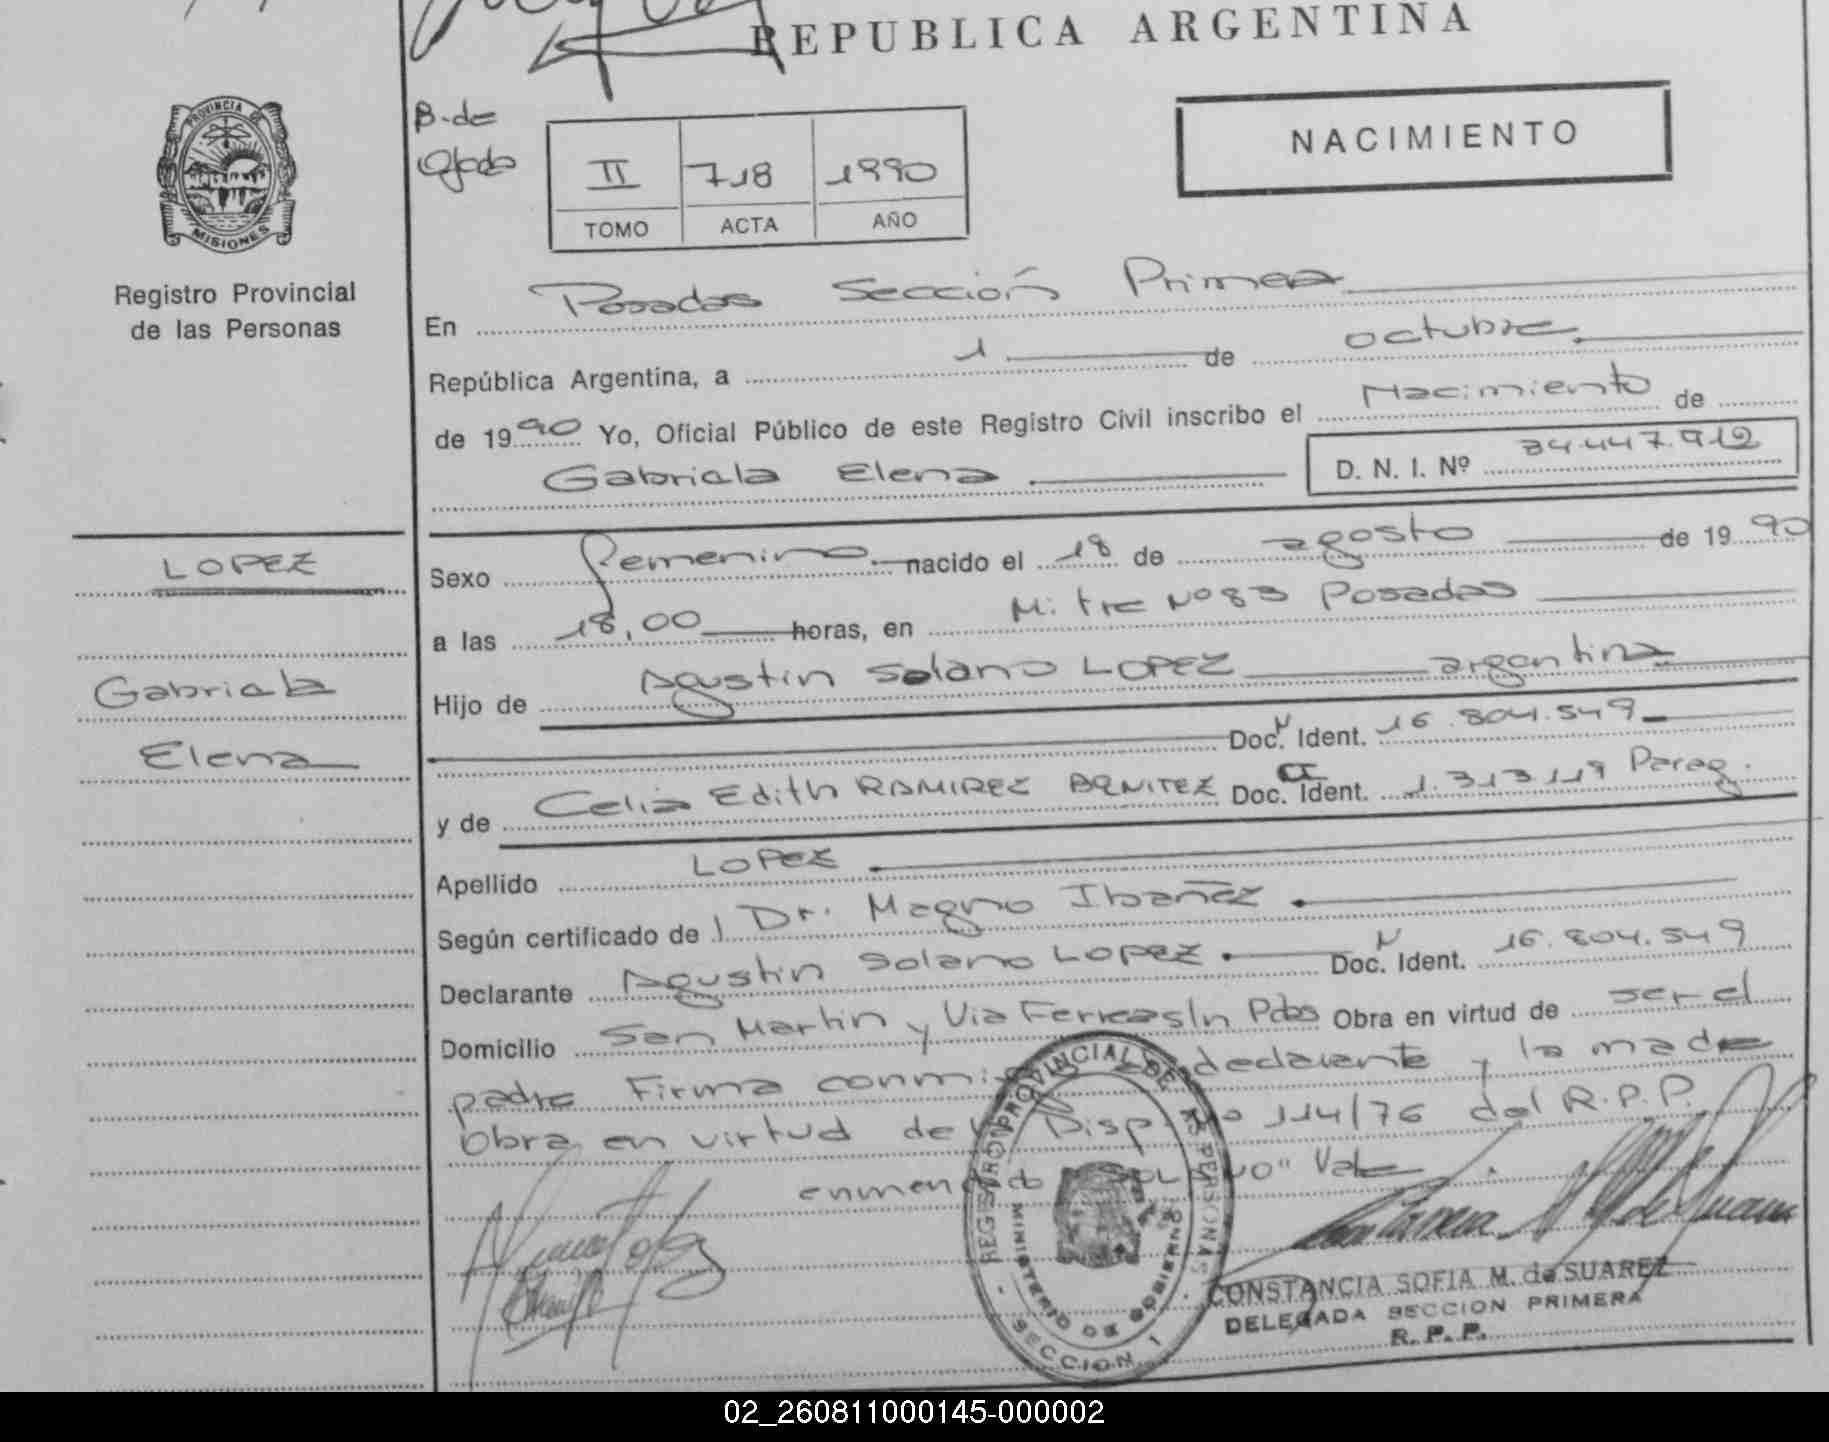 REPUBLICA ARGENTINA
PROVINCIA DE
MISIONES
Registro Provincial
de las Personas
B. de
II 718 1990
TOMO ACTA AÑO
NACIMIENTO
En Posadas Sección Primera
República Argentina, a 1 de octubre
de 1990 Yo, Oficial Público de este Registro Civil inscribo el Nacimiento de
Gabriela Elena D. N. I. Nº 34.447.912
LOPEZ
Gabriela
Elena
Sexo femenino nacido el 18 de agosto de 1990
a las 18,00 horas, en Mitre Nº 83 Posadas
Hijo de Agustin Solano LOPEZ argentina
Doc. N Ident. 16.804.549
y de Celia Edith RAMIREZ BENITEZ Doc. CI Ident. 1.313.119 Parag.
Apellido LOPEZ
Según certificado de Dr. Magno Ibañez
Declarante Agustin Solano LOPEZ Doc. N Ident. 16.804.549
Domicilio San Martin y Via Ferrea s/n Pdas Obra en virtud de ser el
padre Firma conmigo declarante y la madre
Obra en virtud de Disp. Nº 114/76 del R.P.P.
enmendado "SOLANO" Vale
REGISTRO PROVINCIAL DE LAS PERSONAS
MINISTERIO DE GOBIERNO
SECCION 1
CONSTANCIA SOFIA M. de SUAREZ
DELEGADA SECCION PRIMERA
R. P. P.
02_260811000145-000002